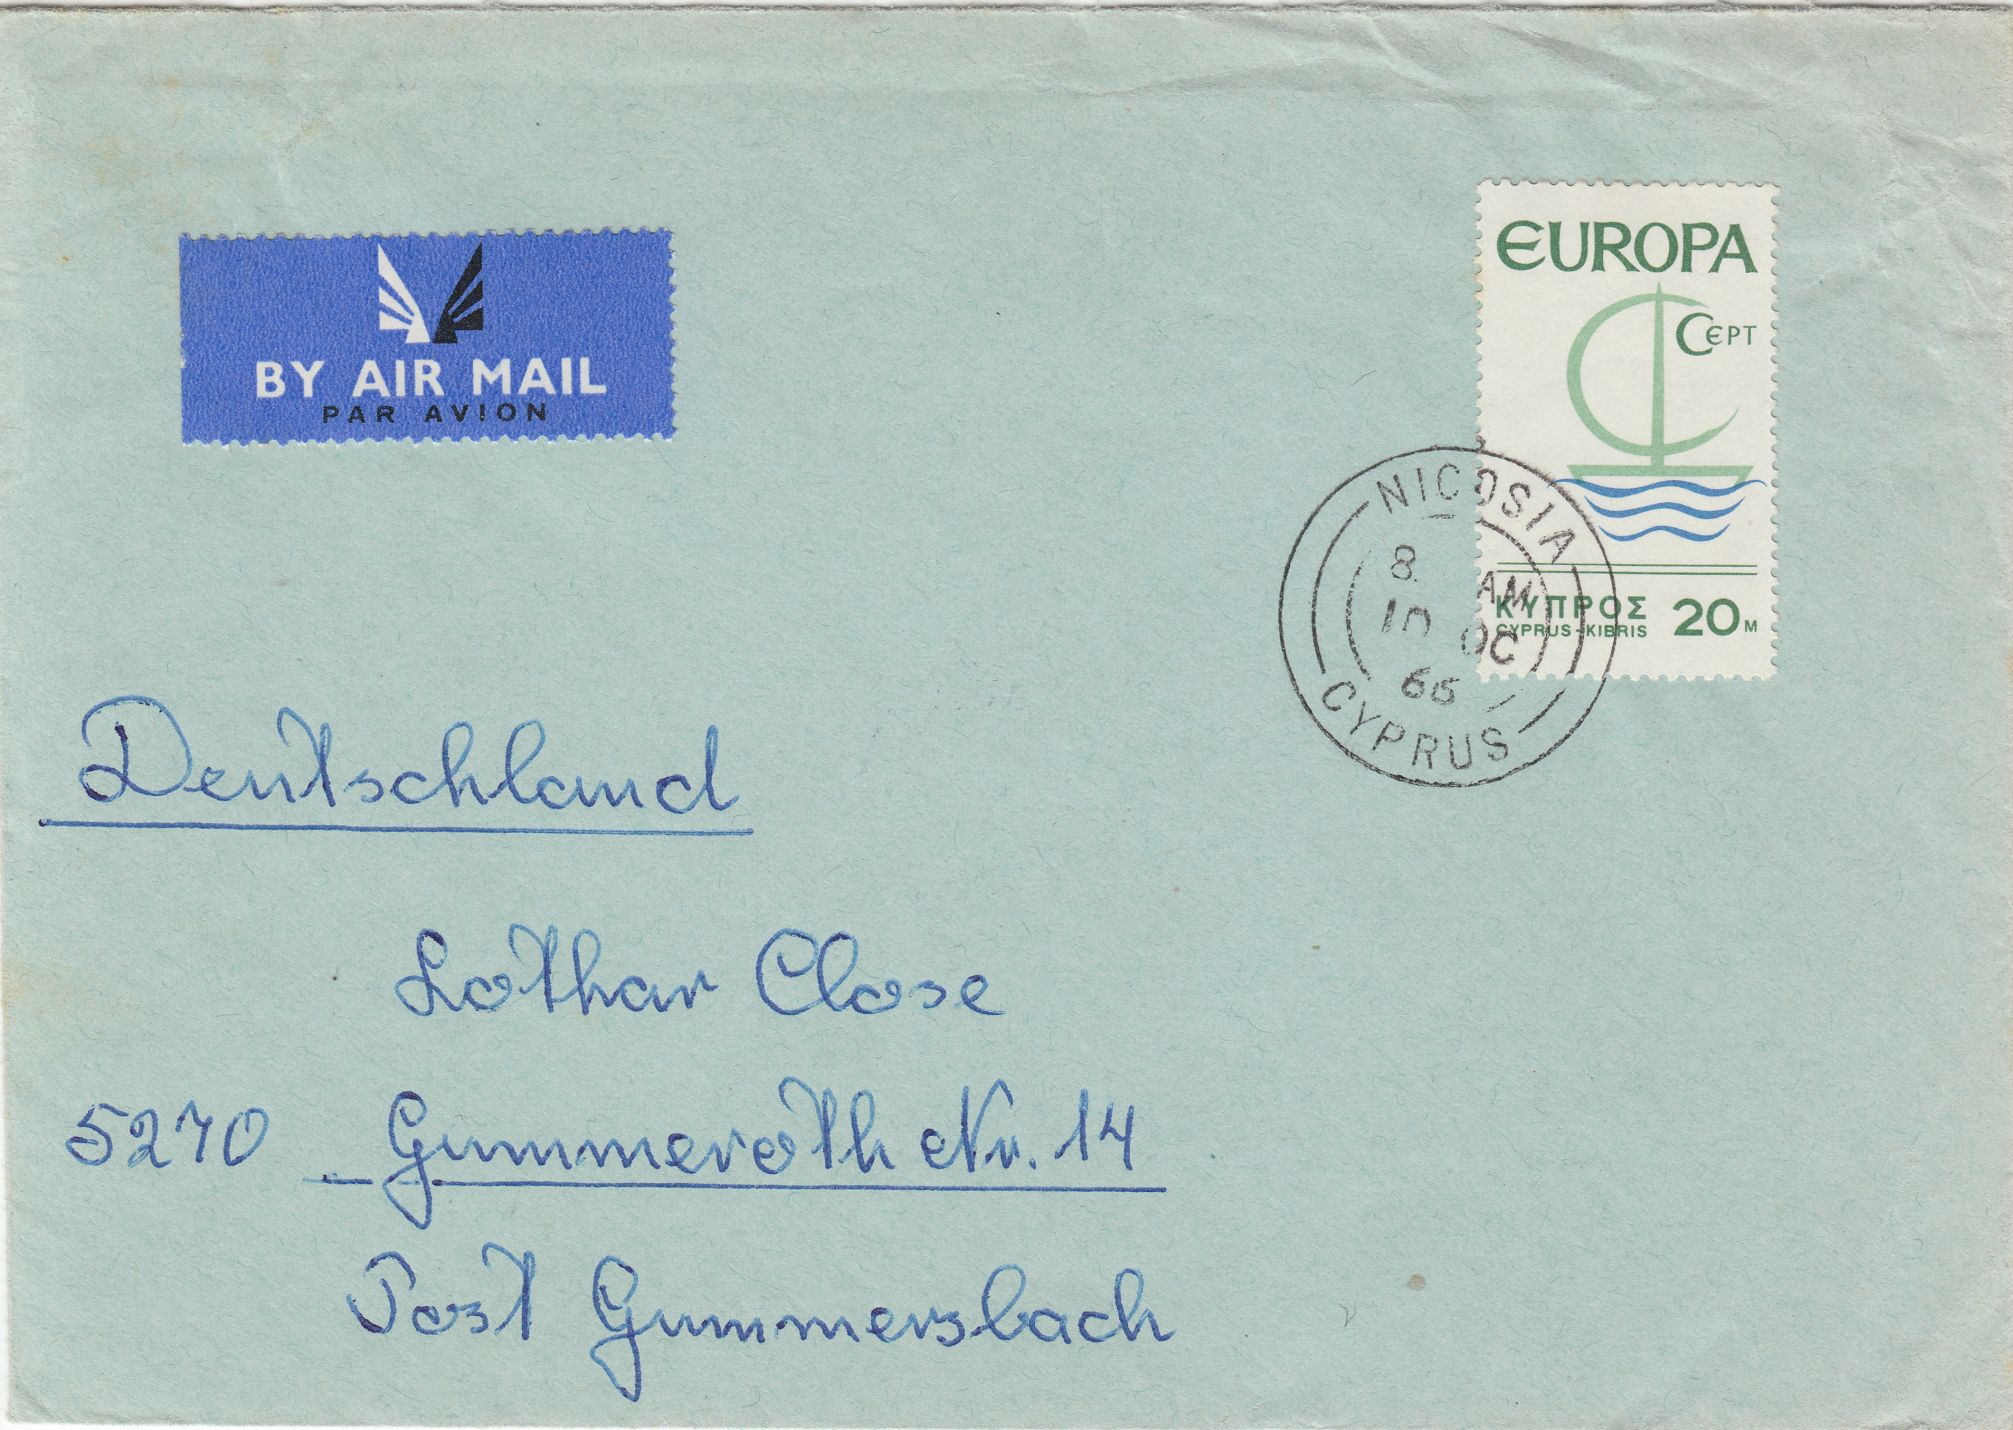 BY AIR MAIL
PAR AVION
EUROPA
CEPT
ΚΥΠΡΟΣ 20M
CYPRUS-KIBRIS
NICOSIA
8 AM
10 OC
66
CYPRUS
Deutschland
Lothar Close
5270 Gummeroth Nr. 14
Post Gummersbach